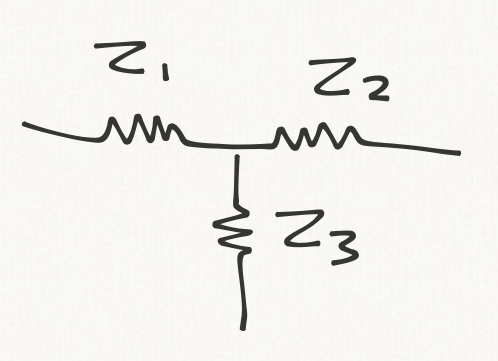 Z1
Z2
Z3